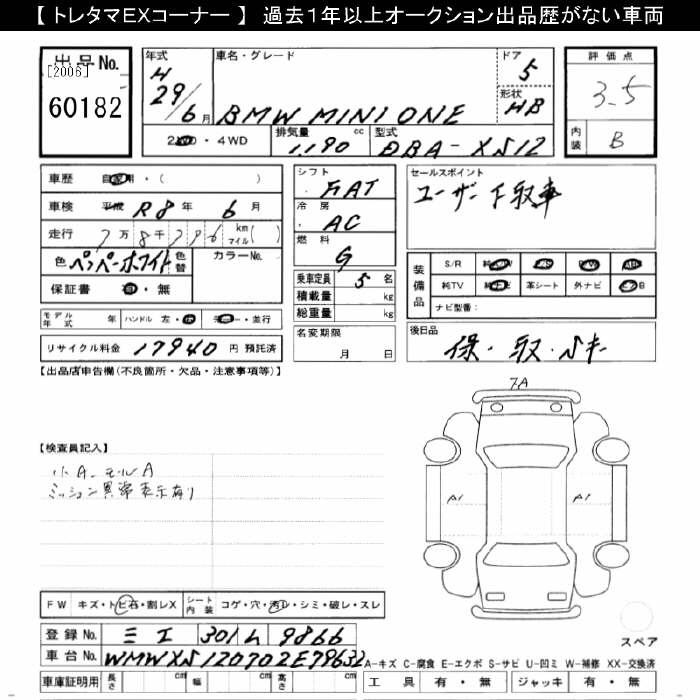 【 トレタマEXコーナー 】 過去１年以上オークション出品歴がない車両
出品No.
[2006]
60182
年式
H 29/6月
車名・グレード
BMW MINI ONE
ドア
5
形状
HB
評価点
3.5
内装
B
2WD・4WD
排気量 cc
1,190
型式
DBA-XS12
車歴 自家用・( )
車検 平成 R8年 6月
走行 7万8千796 km マイル( )
色 ペッパーホワイト 色替 カラーNo.
保証書 有・無
シフト
FAT
冷房
AC
燃料
G
乗車定員 5 名
積載量 kg
総重量 kg
セールスポイント
ユーザー下取車
装備品
S/R
純TV 革シート 外ナビ
ナビ型番：
モデル年式 年 ハンドル 左・右 ディーラー・並行
リサイクル料金 17940 円 預託済
名変期限
月 日
後日品
保・取・Sキー
【出品店申告欄(不良箇所・欠品・注意事項等)】
7A
【検査員記入】
小A モルA
ミッション異常表示有り
A1
A1
FW キズ・トビ石・割レX シート内装 コゲ・穴・汚レ・シミ・破レ・スレ
スペア
登録No. 三重 301 ム 9866
車台No. WMWXS120702E79632
A-キズ C-腐食 E-エクボ S-サビ U-凹ミ W-補修 XX-交換済
車庫証明用 長さ cm 幅 cm 高さ cm
工具 有・無 ジャッキ 有・無